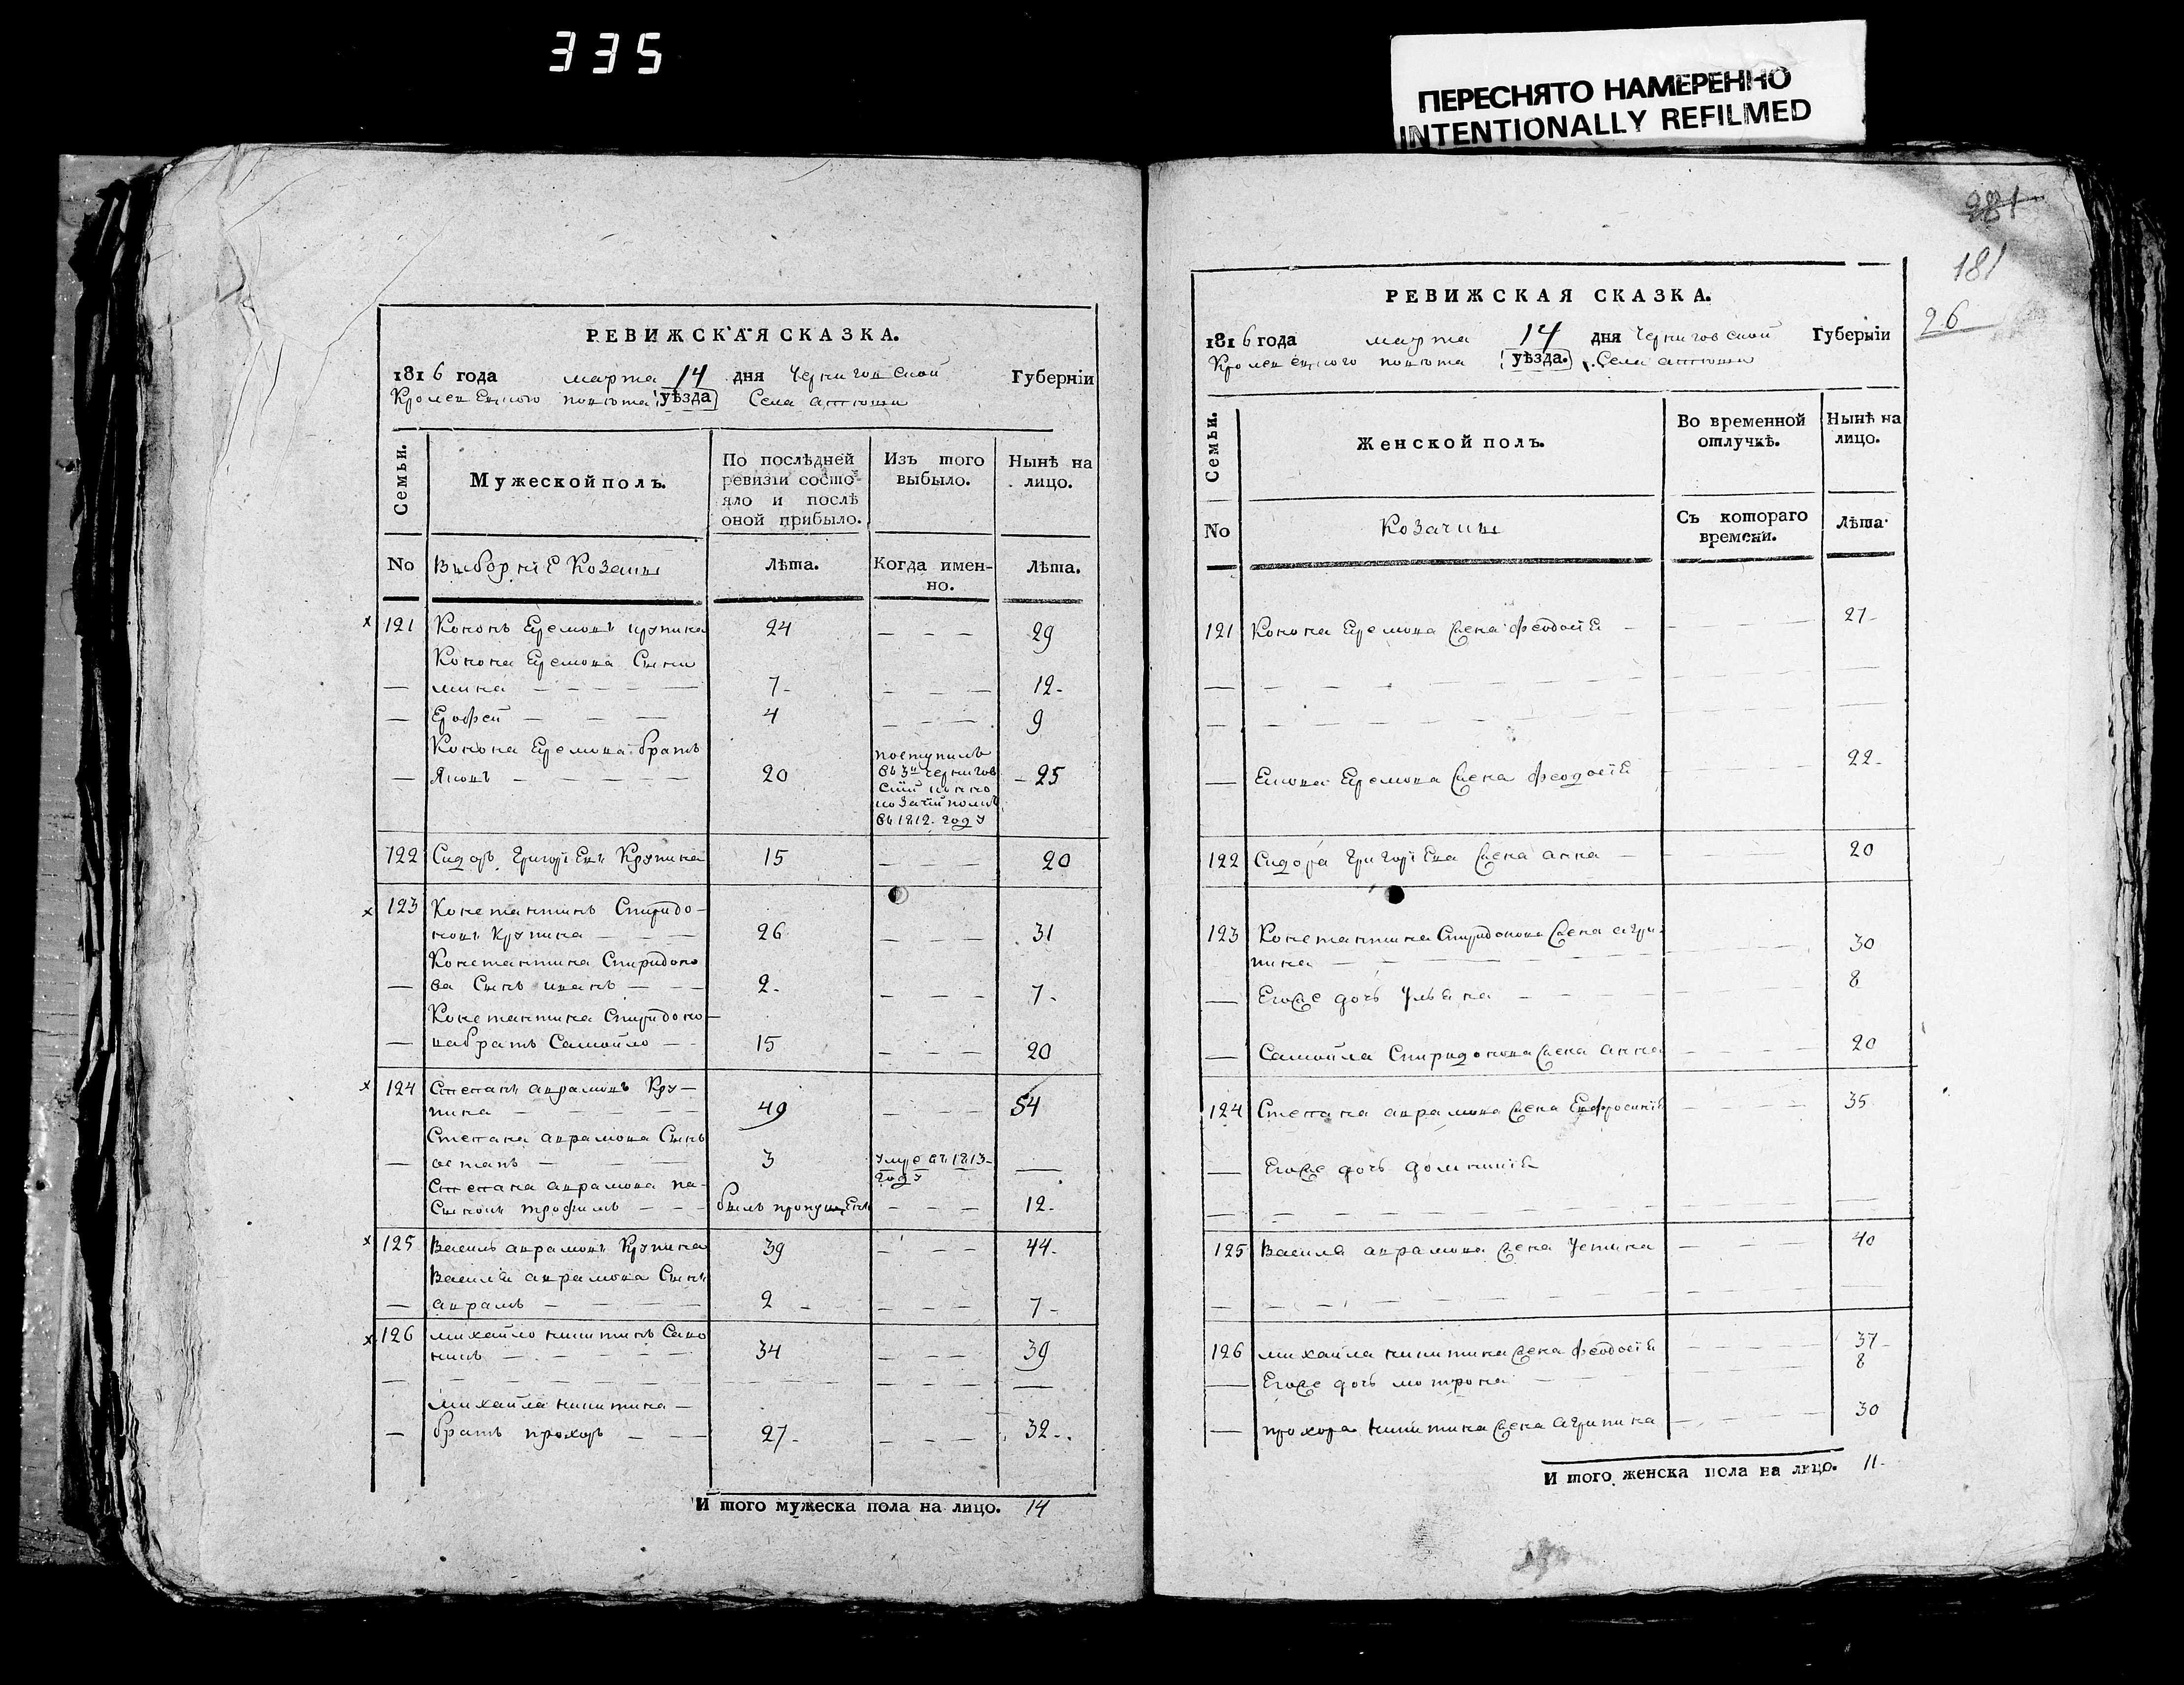 335
ПЕРЕСНЯТО НАМЕРЕННО
INTENTIONALLY REFILMED
РЕВИЖСКАЯ СКАЗКА.
1816 года марта 14 дня Черниговской Губерніи
Кролевецкого повѣта уѣзда Села
Семьи.
Мужеской полъ.
По послѣдней
ревизіи состо-
яло и послѣ
оной прибыло.
Изъ того
выбыло.
Нынѣ на
лицо.
No Выборніе Козаки
Лѣта.
Когда имен-
но.
Лѣта.
121 Кононъ Еремовъ Крупика 24 — — — 29
Конона Еремова Сыни
— мина — — — — 7 — — — 12
— Ерофей — — — 4 — — — 9
Конона Еремова братъ
— Яковъ — — — — 20
поступилъ
въ 3й чернигов
ский конно
козачій полкъ
въ 1812 году
25
122 Сидоръ Григоріевъ Крупика 15 — — — 20
123 Константинъ Спиридо-
новъ Крупика — — — 26 — — — 31
Константина Спиридоно
— ва Сынъ иванъ — — — 2 — — — 7
Константина Спиридоно-
— ва братъ Самойло — — 15 — — — 20
124 Степанъ аврамовъ Кру-
пика — — — — 49 — — — 54
Степана аврамова Сынъ
— остапъ — — — — 3 умре въ 1813 —
году
Степана аврамова па-
Сынокъ трофимъ — — — былъ пропущенъ — — — 12
125 Василь аврамовъ Крупика 39 — — — 44
Василя аврамова Сынъ
— аврамъ — — — — 2 — — — 7
126 михайло никитинъ Сако
— — — — 34 — — — 39
— — — — — — — — — —
михайла никитина —
— братъ прохоръ — — — 27 — — — 32
И того мужеска пола на лицо. 14
281
181
26
РЕВИЖСКАЯ СКАЗКА.
1816 года марта 14 дня Черниговской Губерніи
Кролевецкого повѣта уѣзда. Села
Семьи.
Женской полъ.
Во временной
отлучкѣ.
Нынѣ на
лицо.
No Козачки
Съ котораго
времени.
Лѣта
121 Конона Еремова Жена феодосія — — — — 27
— — — — — — — —
— — — — — — — —
— Екова Еремова Жена феодосія — — — 22
122 Сидора Григоріева Жена анна — — — — 20
123 Константина Спиридонова Жена агри-
пина — — — — — — 30
— Егоже дочь Ульяна — — — — 8
— Самойла Спиридонова Жена анна — — — 20
124 Степана аврамова Жена Евфросинія — — — 35
— Егоже дочь домникія
— — — — — — — —
125 Василя аврамова Жена Устина — — — 40
— — — — — — — —
126 михайла никитина Жена феодосія — — — 37
— Егоже дочь мотрона — — 8
— прохора никитина Жена агрипина — — — 30
И того женска пола на лицо. 11